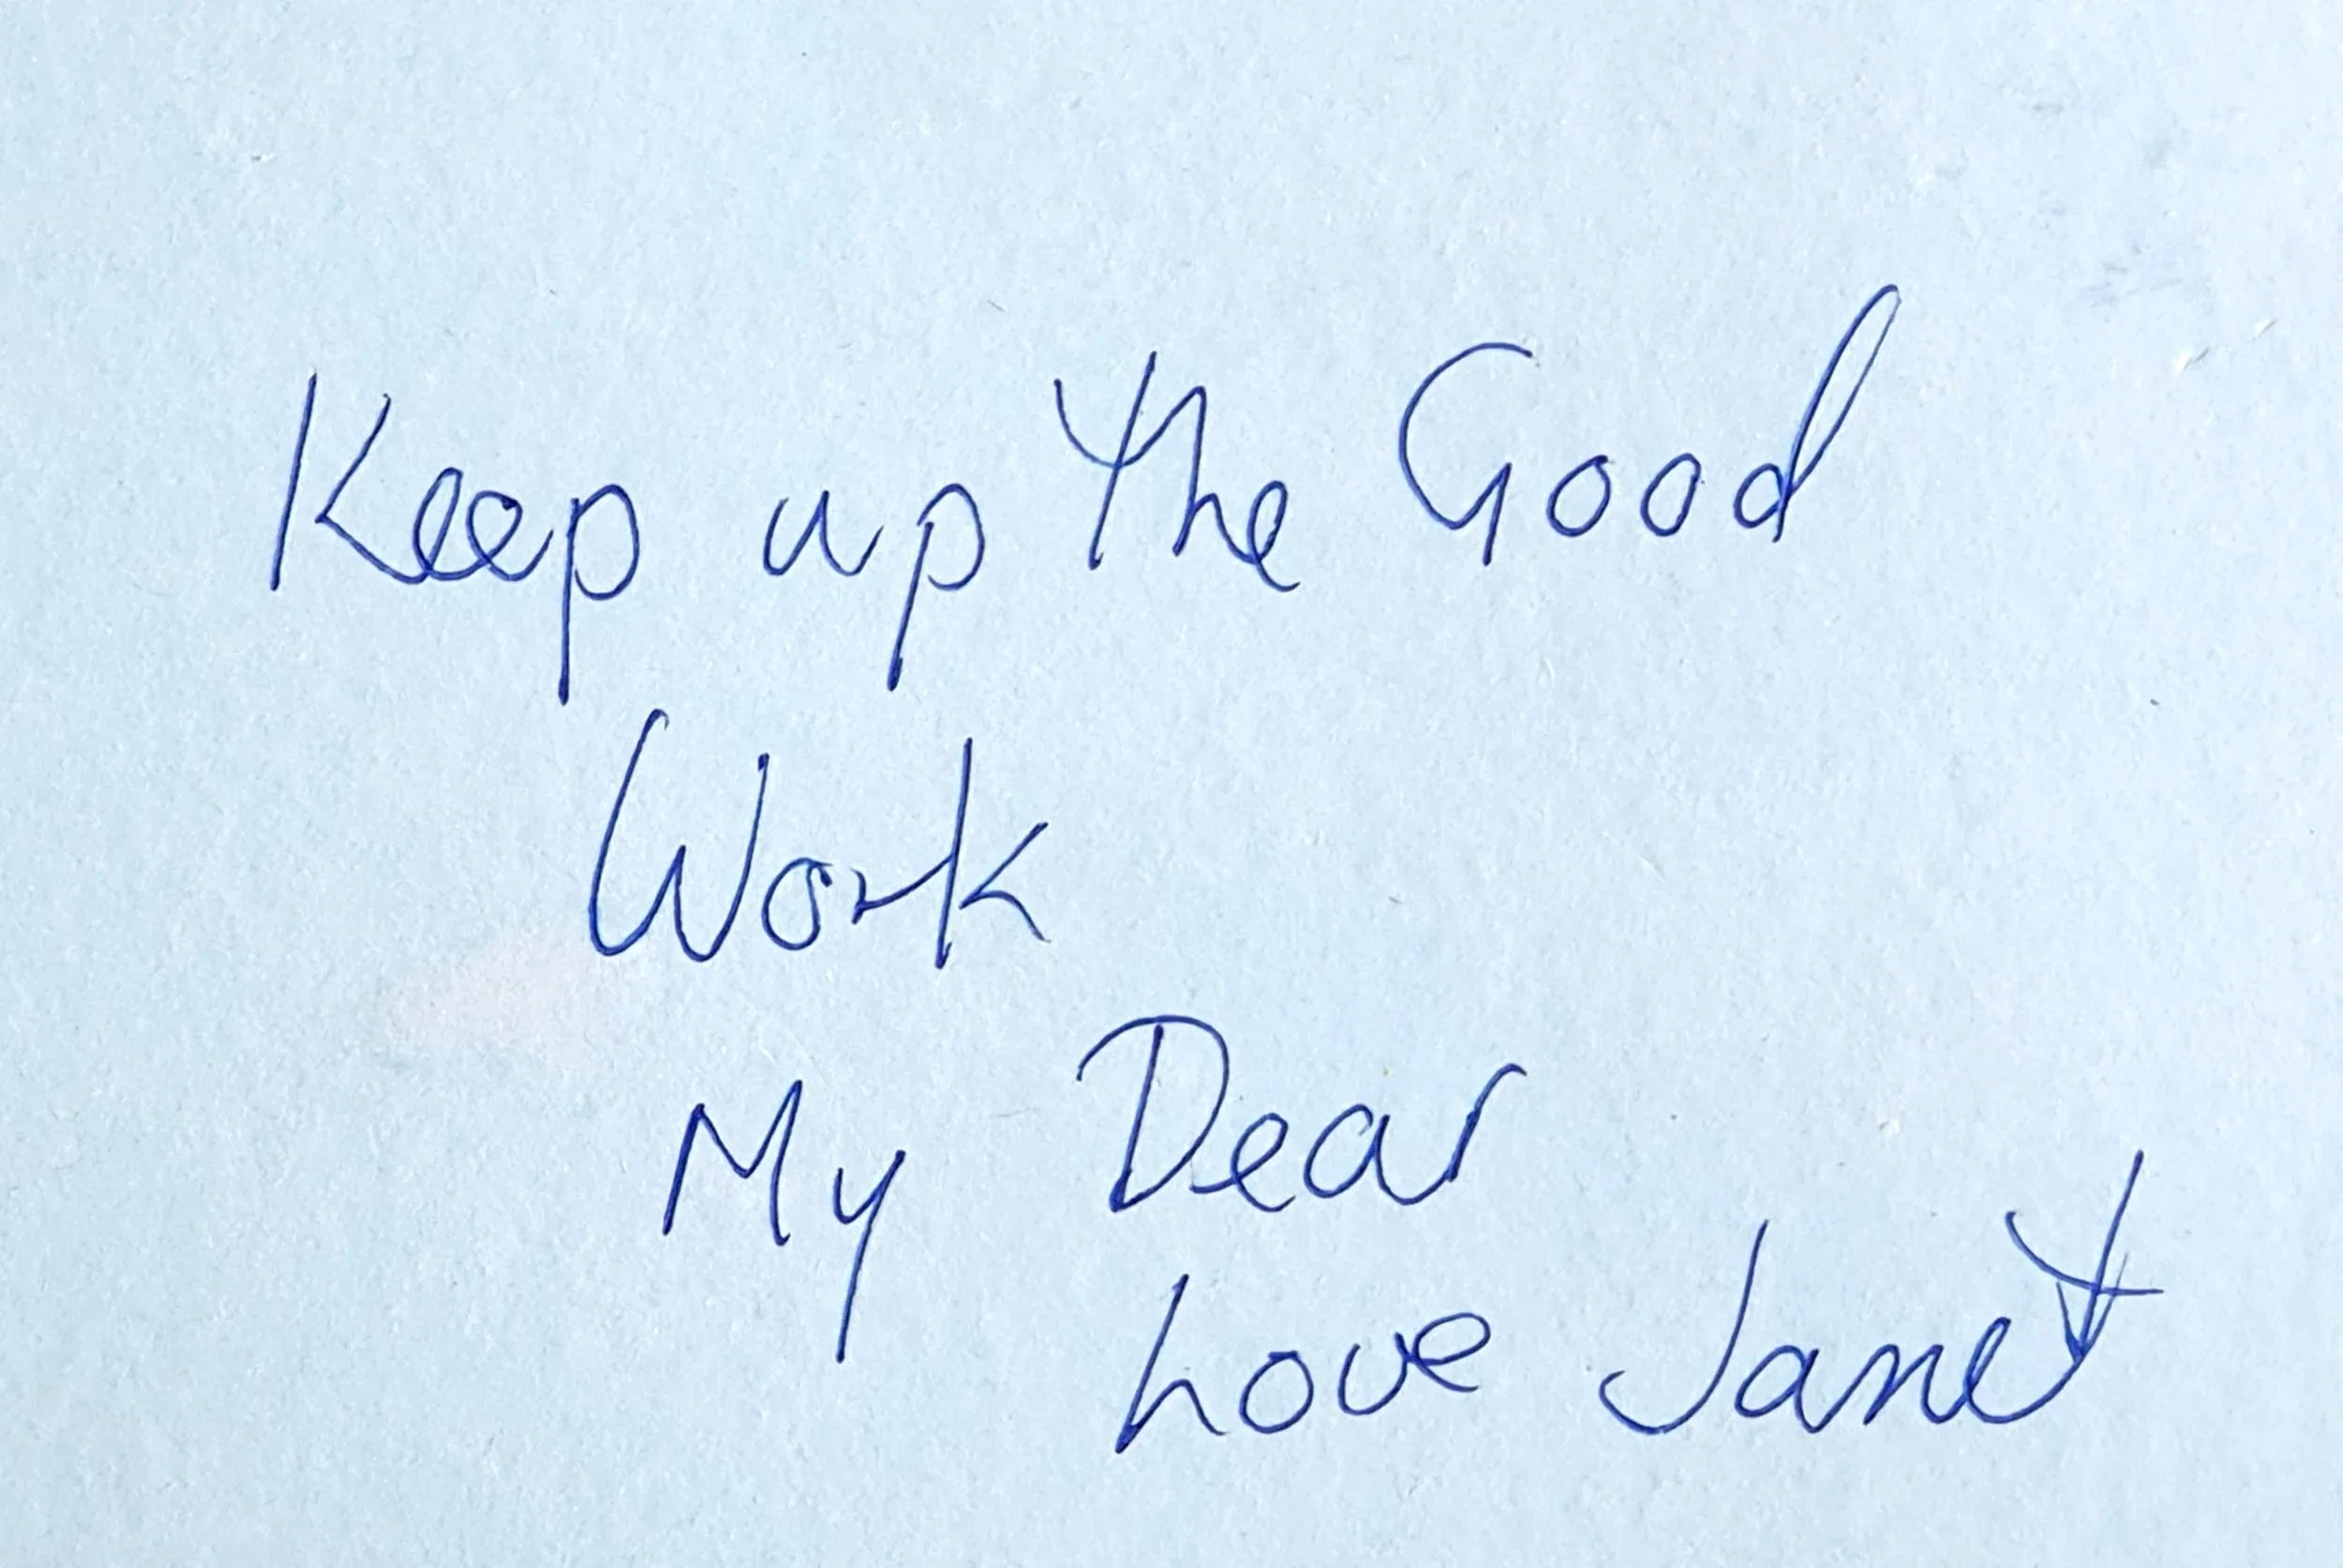 Keep up the Good
Work
My Dear
Love Janet